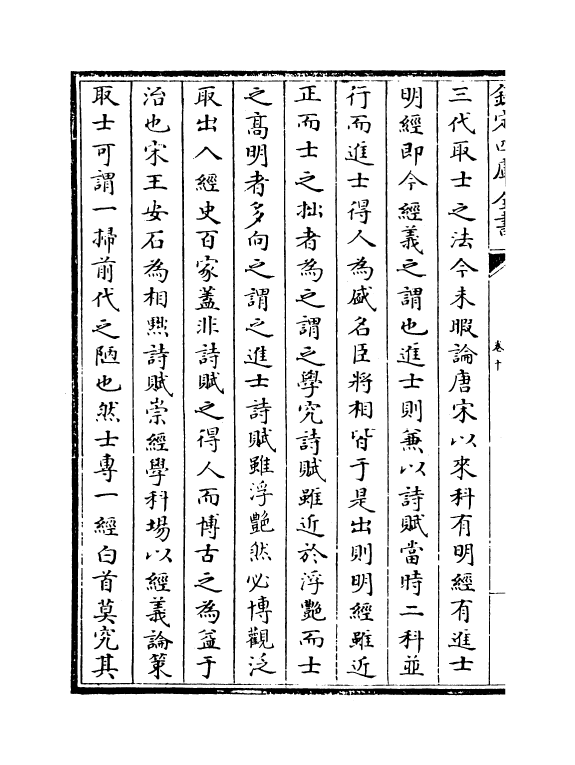 欽定四庫全書
卷十
三代取士之法今未暇論唐宋以來科有明經有進士
明經即今經義之謂也進士則兼以詩賦當時二科並
行而進士得人為盛名臣將相皆于是出則明經雖近
正而士之拙者為之謂之學究詩賦雖近於浮艶而士
之高明者多向之謂之進士詩賦雖浮艶然必博觀泛
取出入經史百家蓋非詩賦之得人而博古之為益于
治也宋王安石為相黜詩賦崇經學科場以經義論策
取士可謂一掃前代之陋也然士專一經白首莫究其